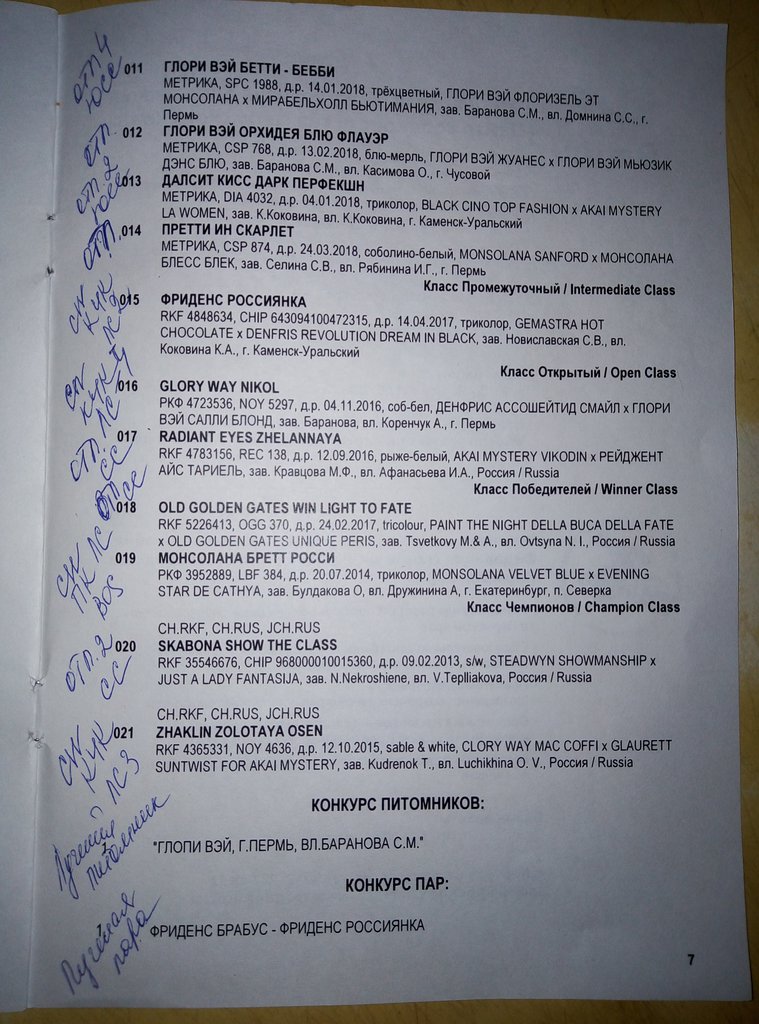 отл 4
юсс
011 ГЛОРИ ВЭЙ БЕТТИ - БЕББИ
МЕТРИКА, SPC 1988, д.р. 14.01.2018, трёхцветный, ГЛОРИ ВЭЙ ФЛОРИЗЕЛЬ ЭТ
МОНСОЛАНА х МИРАБЕЛЬХОЛЛ БЬЮТИМАНИЯ, зав. Баранова С.М., вл. Домнина С.С., г.
Пермь
012 ГЛОРИ ВЭЙ ОРХИДЕЯ БЛЮ ФЛАУЭР
МЕТРИКА, CSP 768, д.р. 13.02.2018, блю-мерль, ГЛОРИ ВЭЙ ЖУАНЕС х ГЛОРИ ВЭЙ МЬЮЗИК
ДЭНС БЛЮ, зав. Баранова С.М., вл. Касимова О., г. Чусовой
юсс
013 ДАЛСИТ КИСС ДАРК ПЕРФЕКШН
МЕТРИКА, DIA 4032, д.р. 04.01.2018, триколор, BLACK CINO TOP FASHION x AKAI MYSTERY
LA WOMEN, зав. К.Коковина, вл. К.Коковина, г. Каменск-Уральский
014 ПРЕТТИ ИН СКАРЛЕТ
МЕТРИКА, CSP 874, д.р. 24.03.2018, соболино-белый, MONSOLANA SANFORD x МОНСОЛАНА
БЛЕСС БЛЕК, зав. Селина С.В., вл. Рябинина И.Г., г. Пермь
Класс Промежуточный / Intermediate Class
CW
КЧК
ЛС 2
015 ФРИДЕНС РОССИЯНКА
RKF 4848634, CHIP 643094100472315, д.р. 14.04.2017, триколор, GEMASTRA HOT
CHOCOLATE x DENFRIS REVOLUTION DREAM IN BLACK, зав. Новиславская С.В., вл.
Коковина К.А., г. Каменск-Уральский
Класс Открытый / Open Class
CW
КЧК
ЛС 4
016 GLORY WAY NIKOL
РКФ 4723536, NOY 5297, д.р. 04.11.2016, соб-бел, ДЕНФРИС АССОШЕЙТИД СМАЙЛ х ГЛОРИ
ВЭЙ САЛЛИ БЛОНД, зав. Баранова, вл. Коренчук А., г. Пермь
СС
017 RADIANT EYES ZHELANNAYA
RKF 4783156, REC 138, д.р. 12.09.2016, рыже-белый, AKAI MYSTERY VIKODIN x РЕЙДЖЕНТ
АЙС ТАРИЕЛЬ, зав. Кравцова М.Ф., вл. Афанасьева И.А., Россия / Russia
Класс Победителей / Winner Class
СС
018 OLD GOLDEN GATES WIN LIGHT TO FATE
RKF 5226413, OGG 370, д.р. 24.02.2017, tricolour, PAINT THE NIGHT DELLA BUCA DELLA FATE
x OLD GOLDEN GATES UNIQUE PERIS, зав. Tsvetkovy M.& A., вл. Ovtsyna N. I., Россия / Russia
CW
ПК ЛС
BOS
019 МОНСОЛАНА БРЕТТ РОССИ
РКФ 3952889, LBF 384, д.р. 20.07.2014, триколор, MONSOLANA VELVET BLUE x EVENING
STAR DE CATHYA, зав. Булдакова О, вл. Дружинина А, г. Екатеринбург, п. Северка
Класс Чемпионов / Champion Class
CH.RKF, CH.RUS, JCH.RUS
отл. 2
СС
020 SKABONA SHOW THE CLASS
RKF 35546676, CHIP 968000010015360, д.р. 09.02.2013, s/w, STEADWYN SHOWMANSHIP x
JUST A LADY FANTASIJA, зав. N.Nekroshiene, вл. V.Teplliakova, Россия / Russia
CH.RKF, CH.RUS, JCH.RUS
CW
КЧК
ЛС 3
021 ZHAKLIN ZOLOTAYA OSEN
RKF 4365331, NOY 4636, д.р. 12.10.2015, sable & white, CLORY WAY MAC COFFI x GLAURETT
SUNTWIST FOR AKAI MYSTERY, зав. Kudrenok T., вл. Luchikhina O. V., Россия / Russia
КОНКУРС ПИТОМНИКОВ:
Лучший
питомник
"ГЛОПИ ВЭЙ, Г.ПЕРМЬ, ВЛ.БАРАНОВА С.М."
КОНКУРС ПАР:
пара
ФРИДЕНС БРАБУС - ФРИДЕНС РОССИЯНКА
7